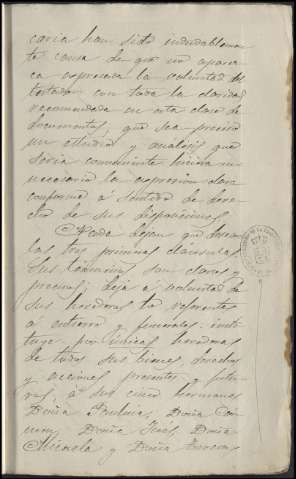 caria han sido indudableme
te causa de que no aparez
ca expresada la voluntad del
testador con toda la claridad
recomendada en esta clase de
documentos, que sea preciso
un estudio y analisis que
seria conveniente hiciera in
necesaria la expresion clara
conforme á sentido de dere
cho de sus disposiciones.
Nada dejan que desear
las tres primeras cláusulas
sus términos son claros y
precisos; deja á voluntad de
sus herederas lo referente
á entierro y funerales: insti
tuye por únicas herederas
de todos sus bienes, derechos
y acciones presentes y futu
ros, á sus cinco hermanas
Doña Paulina, Doña
Doña Inés, Doña
Micaela y Doña Teresa